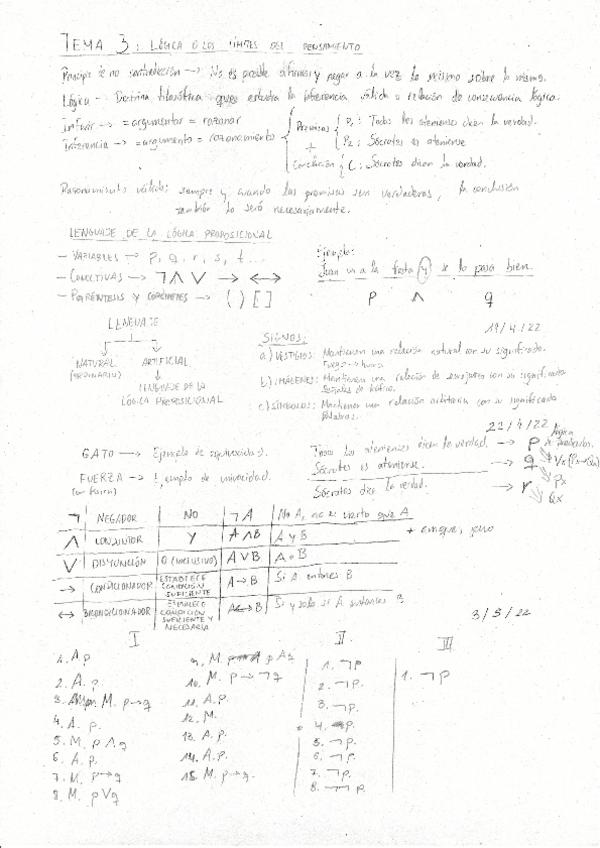 TEMA 3: LÓGICA O LOS LÍMITES DEL PENSAMIENTO
Principio de no contradicción → No es posible afirmar y negar a la vez lo mismo sobre lo mismo.
Lógica - Doctrina filosófica que estudia la inferencia válida o relación de consecuencia lógica.
Inferir → = argumentar = razonar
Inferencia → = argumento = razonamiento
Premisas { P1: Todos los atenienses dicen la verdad.
P2: Sócrates es ateniense
+
Conclusión { C: Sócrates dicen la verdad.
Razonamiento válido: siempre y cuando las premisas sean verdaderas, la conclusión
también lo será necesariamente.
LENGUAJE DE LA LÓGICA PROPOSICIONAL
- VARIABLES → p, q, r, s, t...
- CONECTIVAS → ¬ ∧ ∨ → ↔
- PARÉNTESIS Y CORCHETES → ( ) [ ]
Ejemplo:
Juan va a la fiesta (y) se lo pasa bien.
p ∧ q
LENGUAJE
NATURAL (ORDINARIO)
ARTIFICIAL
LENGUAJE DE LA
LÓGICA PROPOSICIONAL
19/4/22
SIGNOS:
a) VESTIGIOS: Mantienen una relación natural con su significado.
Fuego → humo
b) IMÁGENES: Mantienen una relación de semejanza con su significado
Señales de tráfico.
c) SÍMBOLOS: Mantienen una relación arbitraria con su significado
Palabras.
GATO → Ejemplo de equivocidad.
FUERZA → Ejemplo de univocidad.
22/4/22
lógica de predicados.
Todos los atenienses dicen la verdad. → p
Sócrates es ateniense. → q ∀x(Px→Qx)
Sócrates dice la verdad. → r Px
Qx
¬ NEGADOR NO ¬A No A, no es cierto que A
∧ CONJUNTOR Y A∧B A y B + aunque, pero
∨ DISYUNCIÓN O (INCLUSIVO) A∨B A o B
→ CONDICIONADOR ESTABLECE CONDICIÓN SUFICIENTE A→B Si A entonces B
↔ BICONDICIONADOR ESTABLECE CONDICIÓN SUFICIENTE Y NECESARIA A↔B Si y solo si A entonces B
3/5/22
I
1. A. p
2. A. p.
3. M. p→q
4. A. p.
5. M. p∧q
6. A. p.
7. M. p→q
8. M. p∨q
9. M. p∧q
10. M. p→¬q
11. A. p.
12. M.
13. A. p.
14. A. p.
15. M. p→q.
II
1. ¬p
2. ¬p.
3. ¬p.
4. p.
5. ¬p.
6. ¬p.
7. ¬p.
8. ¬¬p.
III
1. ¬p